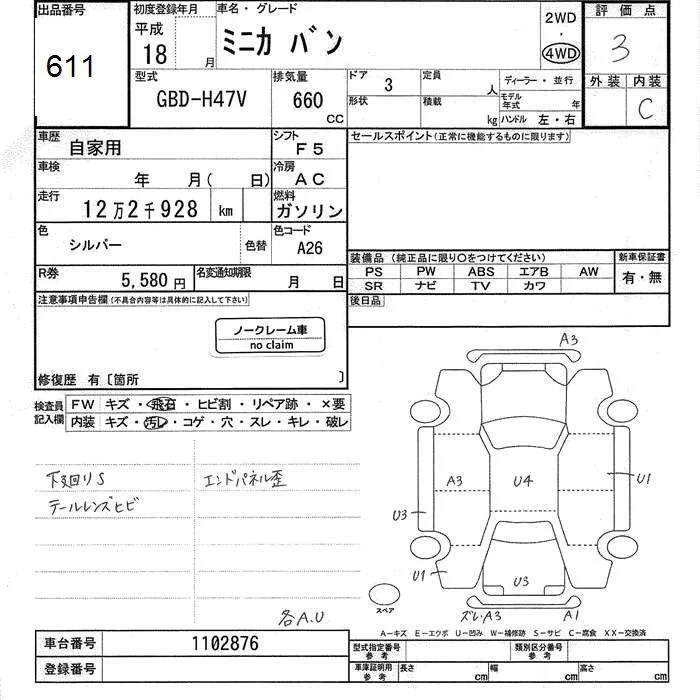 出品番号
611
初度登録年月
平成
18 月
車名・グレード
ミニカ バン
2WD
・
4WD
評価点
3
外装 内装
C
型式
GBD-H47V
排気量
660 CC
ドア 3
定員 人
形状
積載 kg
ディーラー・並行
モデル年式 年
ハンドル 左・右
車歴 自家用
シフト F5
車検 年 月( 日)
冷房 AC
走行 12万2千928 km
燃料 ガソリン
色 シルバー 色替
色コード A26
R券 5,580円
名変通知期限 月 日
セールスポイント(正常に機能するものに限ります)
装備品 (純正品に限り○をつけてください)
PS PW ABS エアB AW
SR ナビ TV カワ
新車保証書
有・無
後日品
注意事項申告欄(不具合内容等は具体的に記入して下さい)
ノークレーム車
no claim
修復歴 有〔箇所 〕
検査員記入欄
FW キズ・飛石・ヒビ割・リペア跡・×要
内装 キズ・汚れ・コゲ・穴・スレ・キレ・破レ
下廻りS
テールレンズヒビ
エンドパネル歪
各A.U
A3
A3
U4
U1
U3
U1
U3
ズレ.A3
A1
スペア
A-キズ E-エクボ U-凹み W-補修跡 S-サビ C-腐食 XX-交換済
車台番号 1102876
登録番号
型式指定番号 参考
類別区分番号 参考
車庫証明用 参考
長さ cm
幅 cm
高さ cm